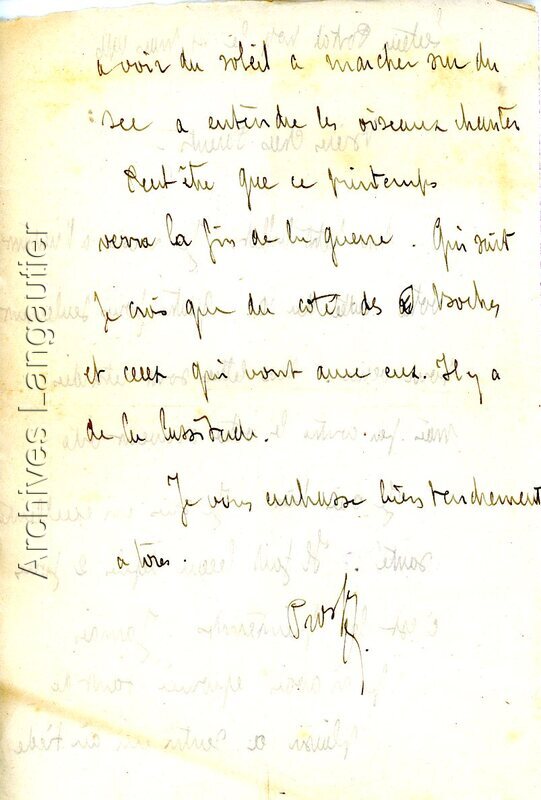 a voir du soleil a marcher sur du
sec a entendre les oiseaux chanter
Peut être que ce printemps
verra la fin de la guerre. Qui sait
Je crois que du coté des Boches
et ceux qui vont avec eux. Il y a
de la lassitude.
Je vous embrasse bien tendrement
a tous.
Prosp
Archives Langautier